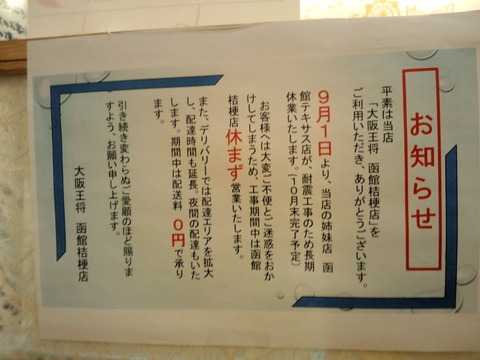 お知らせ
平素は当店
「大阪王将 函館桔梗店」を
ご利用いただき、ありがとうございます。
9月1日より、当店の姉妹店 函
館テキサス店が、耐震工事のため長期
休業いたします（10月末完了予定）
お客様へは大変ご不便とご迷惑をおか
けしてしまうため、工事期間中は函館
桔梗店休まず営業いたします。
また、デリバリーでは配達エリアを拡大
し、配達時間も延長。夜間の配達もいた
します。期間中は配送料 0円で承り
ます。
引き続き変わらぬご愛顧のほど賜りま
すよう、お願い申し上げます。
大阪王将 函館桔梗店